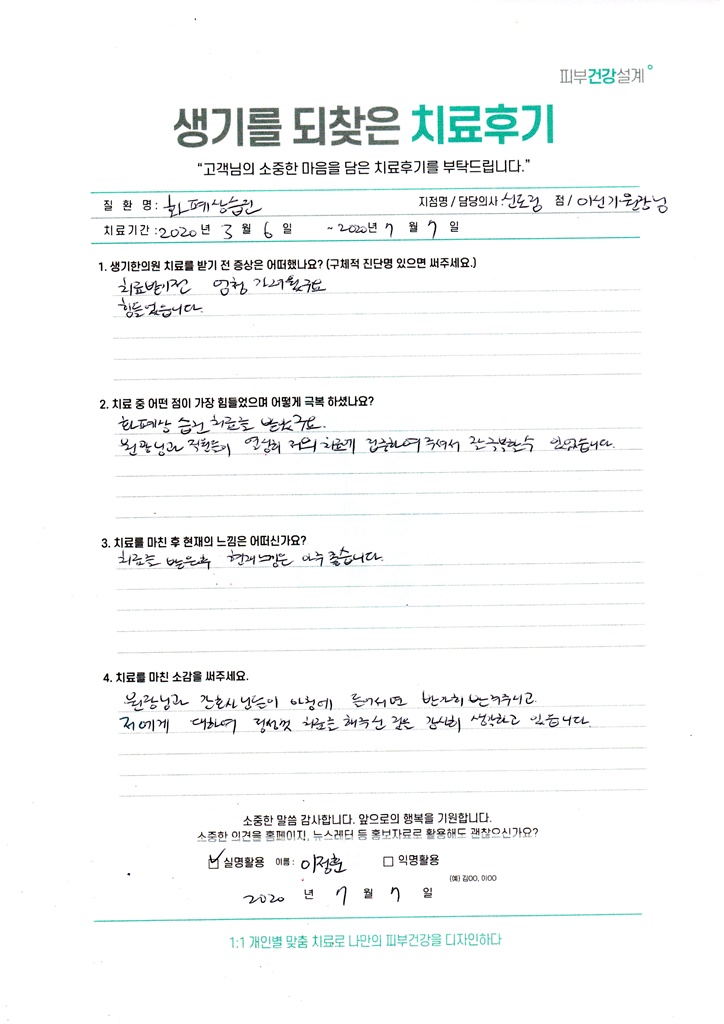 피부건강설계
생기를 되찾은 치료후기
“고객님의 소중한 마음을 담은 치료후기를 부탁드립니다.”
질 환 명 : 화폐상습진 지점명 / 담당의사 : 신도림 점 / 이선기원장님
치료기간 : 2020 년 3 월 6 일 ~ 2020 년 7 월 7 일
1. 생기한의원 치료를 받기 전 증상은 어떠했나요? (구체적 진단명 있으면 써주세요.)
치료받기전 엄청 가려웠구요
힘들었습니다.
2. 치료 중 어떤 점이 가장 힘들었으며 어떻게 극복 하셨나요?
화폐상 습진 치료를 받았구요.
원장님과 직원분이 열심히 저의 치료에 집중하여 주셔서 잘 극복할수 있었습니다.
3. 치료를 마친 후 현재의 느낌은 어떠신가요?
치료를 받은후 현재느낌은 아주 좋습니다.
4. 치료를 마친 소감을 써주세요.
원장님과 간호사님들이 아침에 들어서면 반가히 반겨주시고
저에게 대하여 정성껏 치료를 해주신 점을 감사히 생각하고 있습니다.
소중한 말씀 감사합니다. 앞으로의 행복을 기원합니다.
소중한 의견을 홈페이지, 뉴스레터 등 홍보자료로 활용해도 괜찮으신가요?
실명활용 이름 : 이정훈 익명활용
(예) 김OO, 이OO
2020 년 7 월 7 일
1:1 개인별 맞춤 치료로 나만의 피부건강을 디자인하다